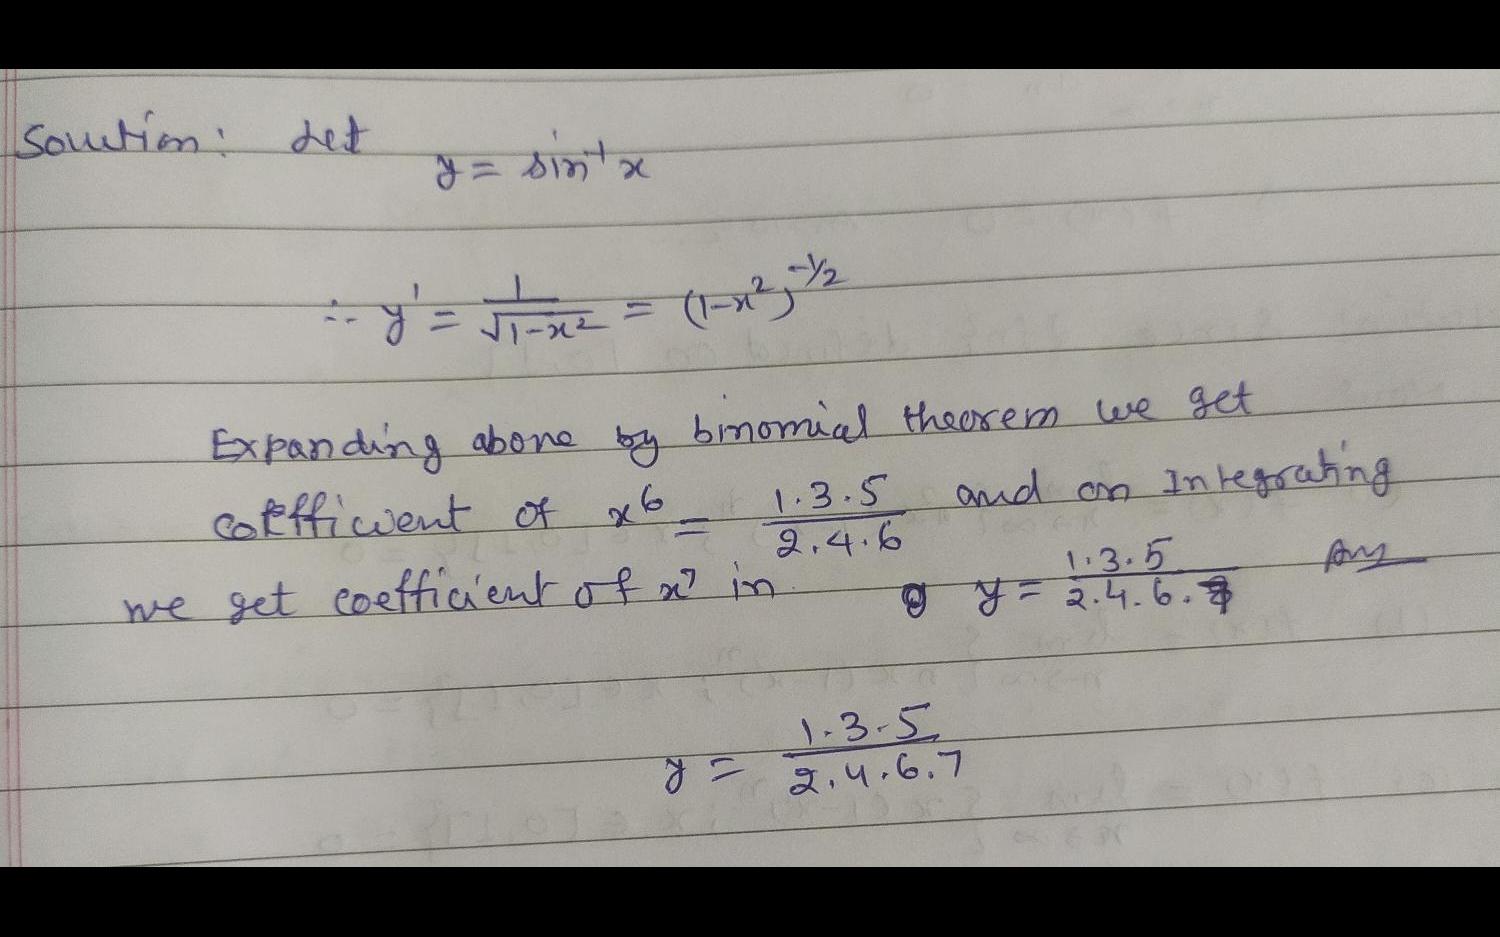 Solution: Let y = sin⁻¹ x
∴ y' = 1/√1-x² = (1-x²)^-1/2
Expanding above by binomial theorem we get
coefficient of x⁶ = 1.3.5/2.4.6 and on Integrating
we get coefficient of x⁷ in y = 1.3.5/2.4.6.7 Ans
y = 1.3.5/2.4.6.7